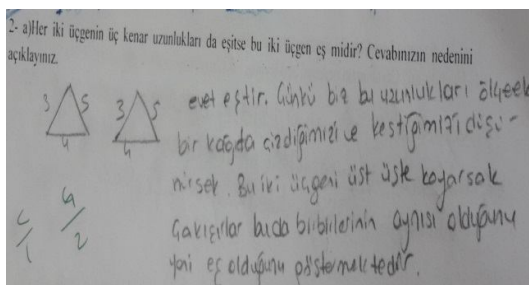 2- a)Her iki üçgenin üç kenar uzunlukları da eşitse bu iki üçgen eş midir? Cevabınızın nedenini
açıklayınız.
3 5 4
3 5 4
evet eştir. Çünkü biz bu uzunlukları ölçerek
bir kağıda çizdiğimizi ve kestiğimizi düşü-
nürsek. Bu iki üçgeni üst üste koyarsak
Çakışırlar buda birbirlerinin aynısı olduğunu
yani eş olduğunu göstermektedir.